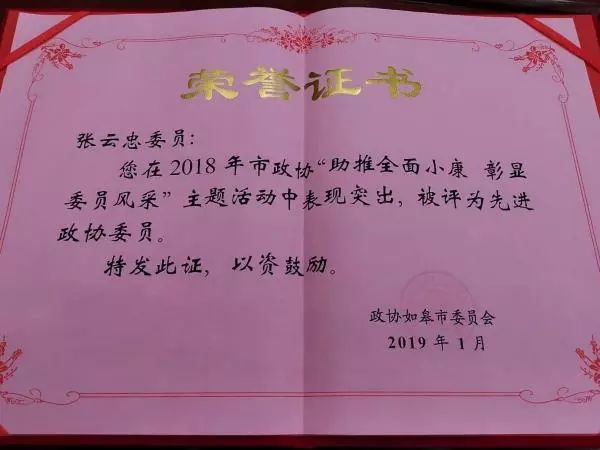 荣誉证书
张云忠委员：
您在2018年市政协“助推全面小康 彰显
委员风采”主题活动中表现突出，被评为先进
政协委员。
特发此证，以资鼓励。
政协如皋市委员会
2019年1月